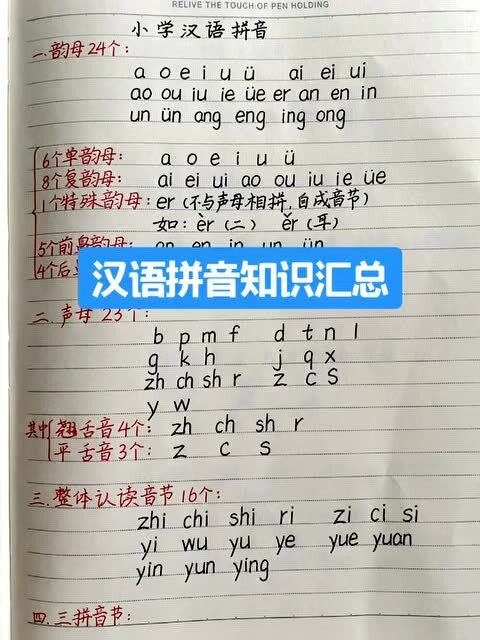 RELIVE THE TOUCH OF PEN HOLDING
小学汉语拼音
一.韵母24个：
a o e i u ü ai ei ui
ao ou iu ie üe er an en in
un ün ang eng ing ong
6个单韵母： a o e i u ü
8个复韵母： ai ei ui ao ou iu ie üe
1个特殊韵母：er（不与声母相拼，自成音节）
如：èr（二） ěr（耳）
5个前鼻韵母：an en in un ün
4个后
汉语拼音知识汇总
二.声母23个：
b p m f d t n l
g k h j q x
zh ch sh r z c s
y w
其中
翘舌音4个： zh ch sh r
平舌音3个： z c s
三.整体认读音节16个：
zhi chi shi ri zi ci si
yi wu yu ye yue yuan
yin yun ying
四.三拼音节：